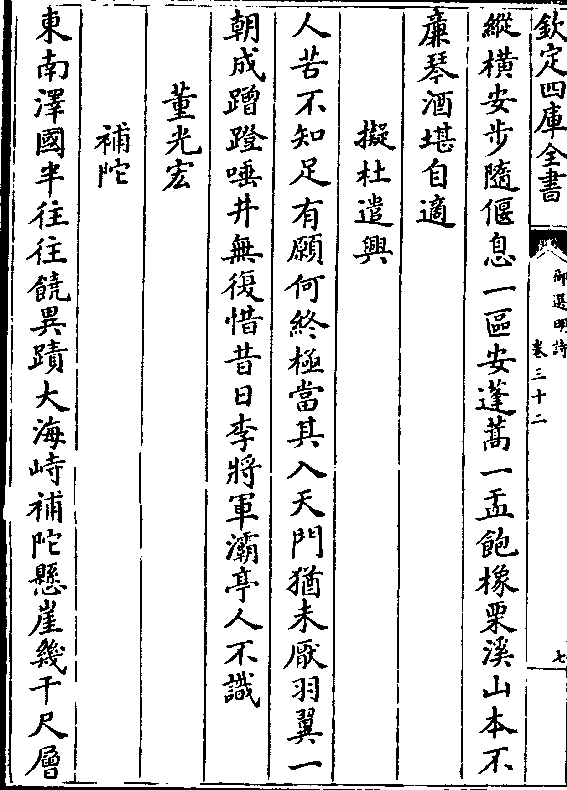 欽定四庫全書
御選明詩
卷三十二
七
縱横安步隨偃息一區安蓬蒿一盂飽橡栗溪山本不
廉琴酒堪自適
擬杜遣興
人苦不知足有願何終極當其入天門猶未厭羽翼一
朝成蹭蹬唾井無復惜昔日李將軍灞亭人不識
董光宏
補陀
東南澤國半往往饒異蹟大海峙補陀懸崖幾千尺層